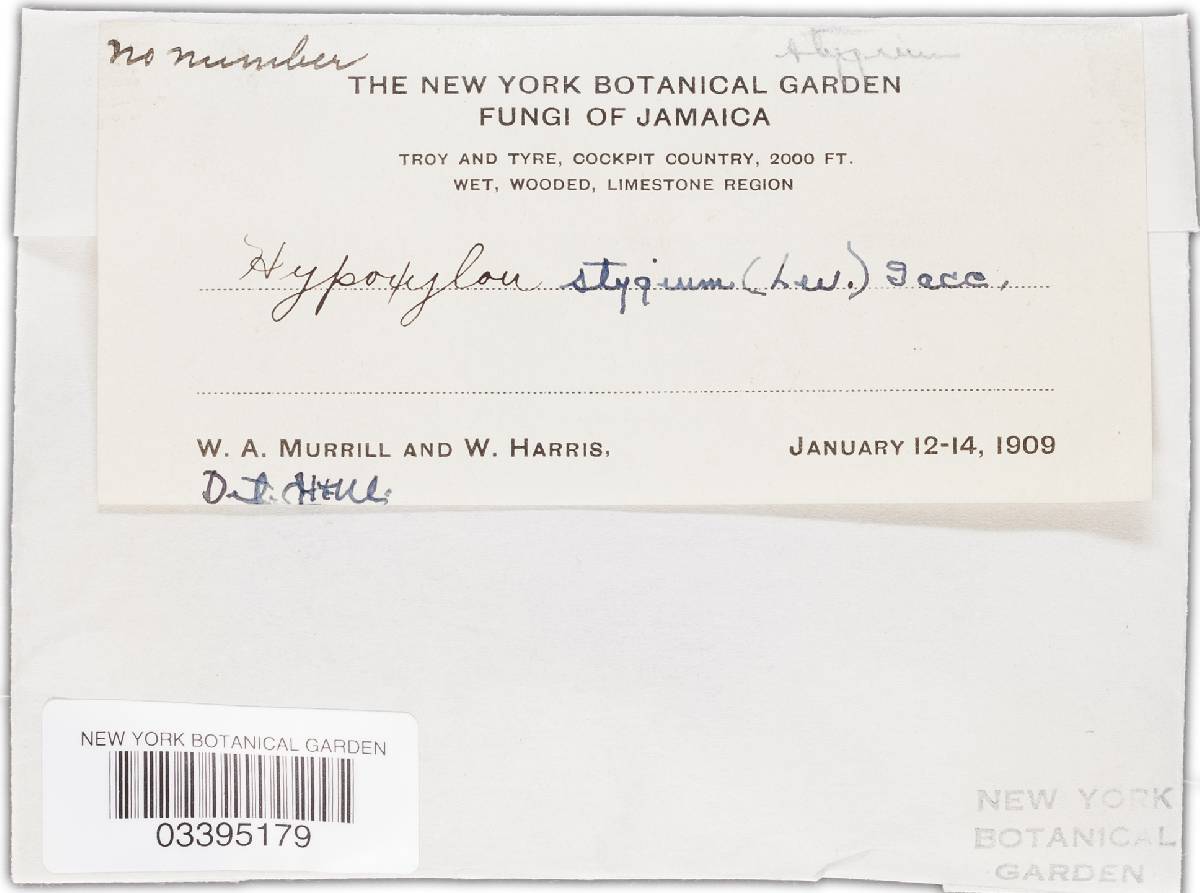 no number
stygium
THE NEW YORK BOTANICAL GARDEN
FUNGI OF JAMAICA
TROY AND TYRE, COCKPIT COUNTRY, 2000 FT.
WET, WOODED, LIMESTONE REGION
Hypoxylon stygium (Lev.) Sacc.
W. A. MURRILL AND W. HARRIS, JANUARY 12-14, 1909
NEW YORK BOTANICAL GARDEN
03395179
NEW YORK
BOTANICAL
GARDEN